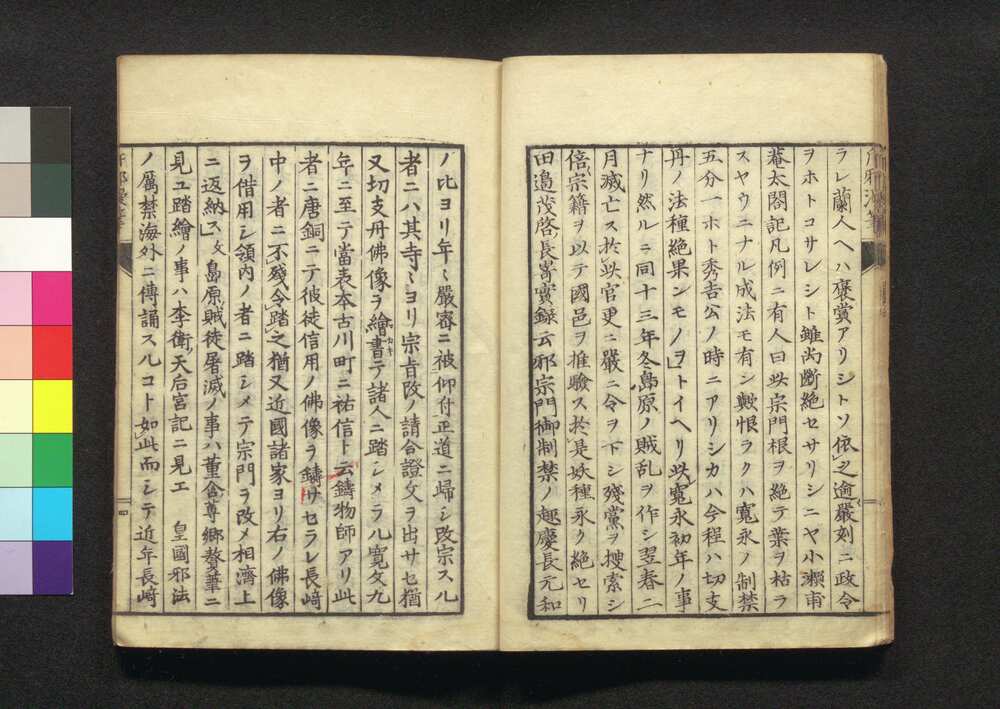 ラレ蘭人ヘハ褒賞アリシトソ依之逾嚴刻ニ政令
ヲホトコサレシト雖尚斷絶セサリシニヤ小瀬甫
菴太閤記凡例ニ有人曰此宗門根ヲ絶テ葉ヲ枯ラ
スヤウニナル成法モ有ン歟恨ラクハ寛永ノ制禁
五分一ホト秀吉公ノ時ニアリシカハ今程ハ切支
丹ノ法種絶果ンモノヲトイヘリ此寛永初年ノ事
ナリ然ルニ同十三年冬島原ノ賊乱ヲ作シ翌春二
月滅亡ス於此官更ニ嚴ニ令ヲ下シ殘黨ヲ搜索シ
倍宗籍ヲ以テ國邑ヲ推驗ス於是妖種永ク絶セリ
田邉茂啓長嵜實録云邪宗門御制禁ノ趣慶長元和
ノ比ヨリ年々嚴審ニ被仰付正道ニ歸シ改宗スル
者ニハ其寺々ヨリ宗旨改ノ請合證文ヲ出サセ猶
又切支丹佛像ヲ繪書テ諸人ニ踏シメラル寛文九
年ニ至テ當表本古川町ニ祐信ト云鑄物師アリ此
者ニ唐銅ニテ彼徒信用ノ佛像ヲ鑄サセラレ長﨑
中ノ者ニ不殘令踏之猶又近國諸家ヨリ右ノ佛像
ヲ借用シ領内ノ者ニ踏シメテ宗門ヲ改メ相濟上
ニ返納ス文島原賊徒屠滅ノ事ハ董含蓴郷贅筆ニ
見ユ踏繪ノ事ハ李衛天后宮記ニ見エ 皇國邪法
ノ厲禁海外ニ傳誦スルコト如此而シテ近年長﨑
四